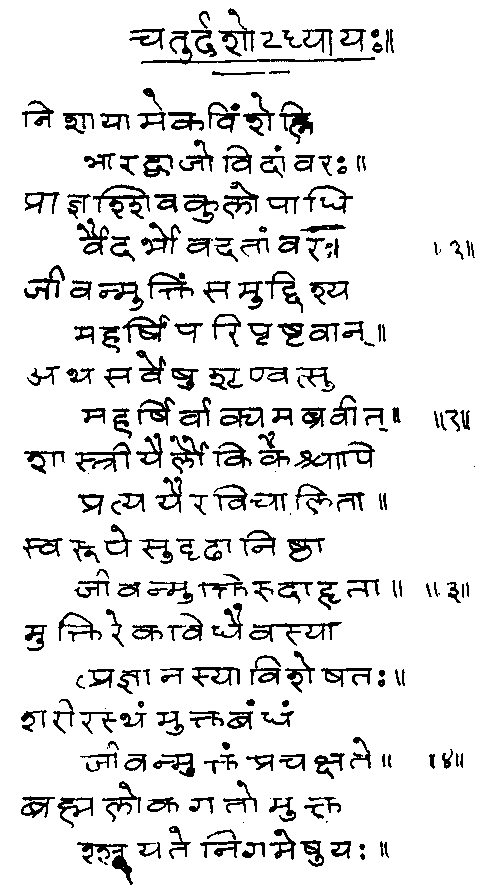 चतुर्दशोऽध्यायः॥
निशायामेकविंशेह्नि
भारद्वाजो विदांवरः॥
प्राज्ञश्शिवकुलोपाधि
र्वैदर्भो वदतांवरः॥ ॥१॥
जीवन्मुक्तिं समुद्दिश्य
महर्षिं परिपृष्टवान्॥
अथ सर्वेषु शृण्वत्सु
महर्षिर्वाक्यमब्रवीत्॥ ॥२॥
शास्त्रीयैर्लौकिकैश्चापि
प्रत्ययैरविचालिता॥
स्वरूपे सुदृढा निष्ठा
जीवन्मुक्तिरुदाहृता॥ ॥३॥
मुक्तिरेकविधैव स्या
त्प्रज्ञानस्याविशेषतः॥
शरीरस्थं मुक्तबंधं
जीवन्मुक्तं प्रचक्षते॥ ॥४॥
ब्रह्मलोकगतो मुक्त
श्श्रूयते निगमेषु यः॥